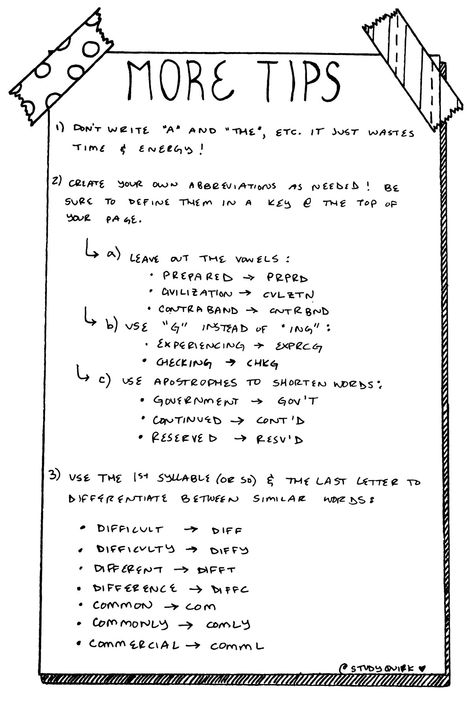 MORE TIPS
1) DON'T WRITE "A" AND "THE", ETC. IT JUST WASTES
TIME & ENERGY!
2) CREATE YOUR OWN ABBREVIATIONS AS NEEDED! BE
SURE TO DEFINE THEM IN A KEY @ THE TOP OF
YOUR PAGE.
↳ a) LEAVE OUT THE VOWELS:
• PREPARED → PRPRD
• CIVILIZATION → CVLZTN
• CONTRABAND → CNTRBND
↳ b) USE "G" INSTEAD OF "ING":
• EXPERIENCING → EXPRCG
• CHECKING → CHKG
↳ c) USE APOSTROPHES TO SHORTEN WORDS:
• GOVERNMENT → GOV'T
• CONTINUED → CONT'D
• RESERVED → RESV'D
3) USE THE 1ST SYLLABLE (OR SO) & THE LAST LETTER TO
DIFFERENTIATE BETWEEN SIMILAR WORDS:
• DIFFICULT → DIFF
• DIFFICULTY → DIFFY
• DIFFERENT → DIFFT
• DIFFERENCE → DIFFC
• COMMON → COM
• COMMONLY → COMLY
• COMMERCIAL → COMML
@STUDYQUIRK ♥